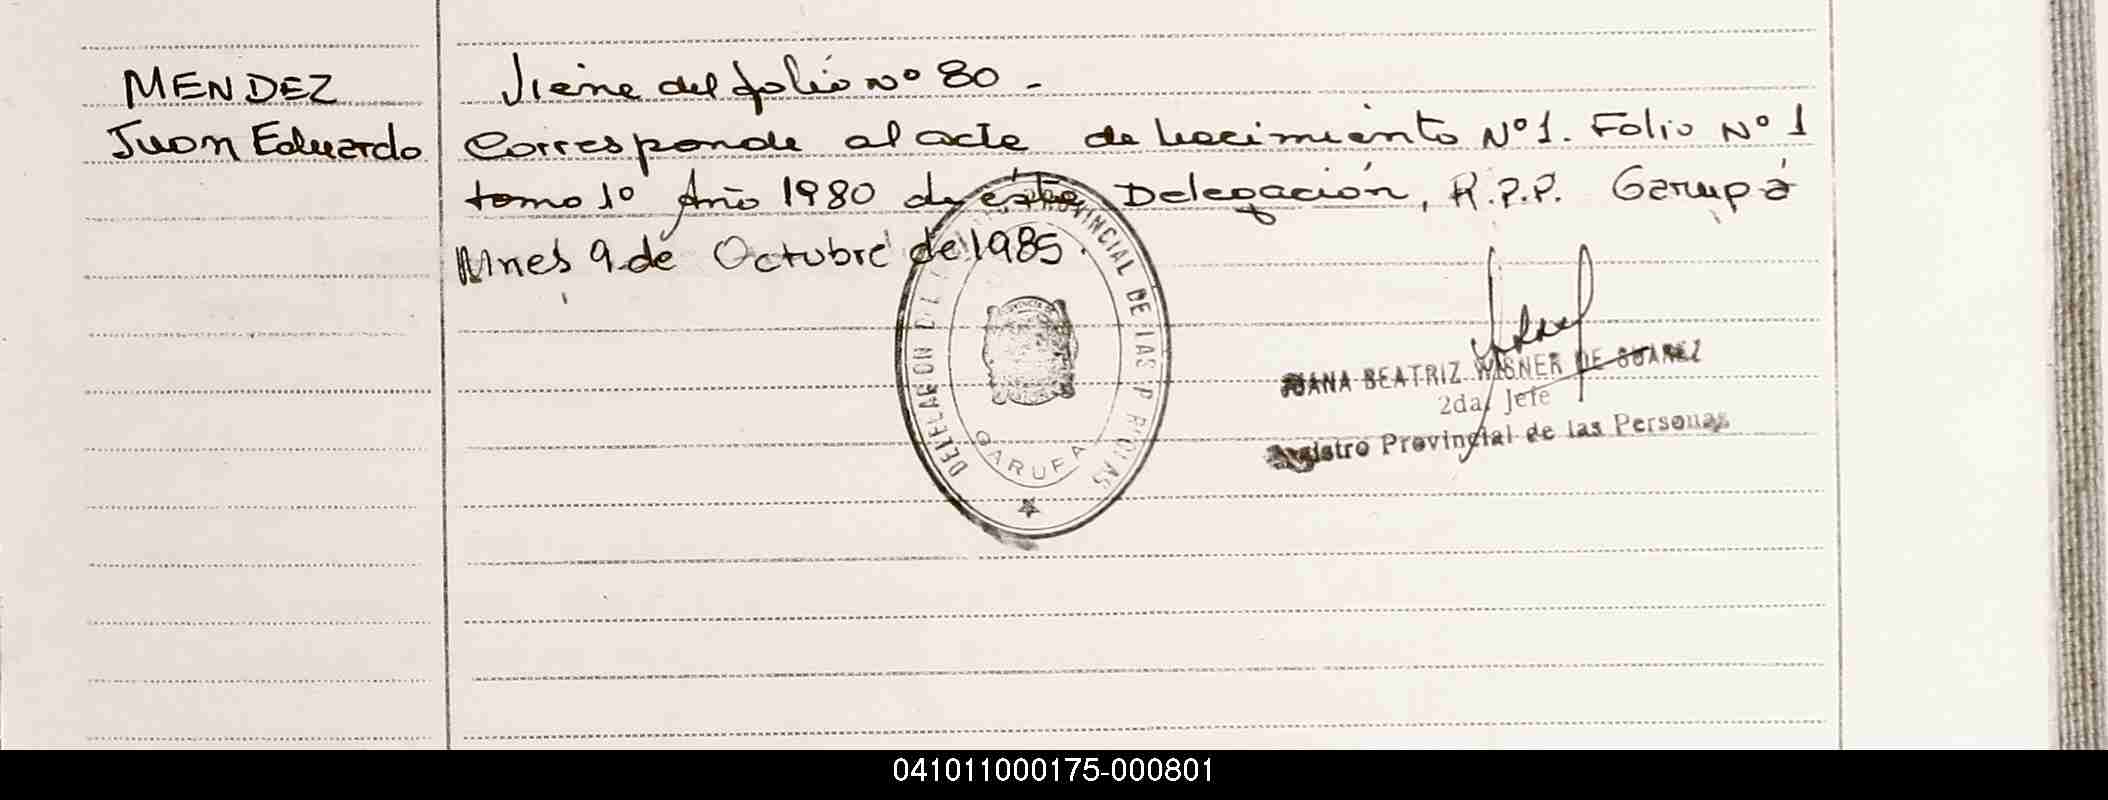 MENDEZ
Juan Eduardo
Viene del folio Nº 80 -
Corresponde al acta de Nacimiento Nº 1. Folio Nº 1
tomo 1º Año 1980 de esta Delegación, R.P.P. Garupá
Mnes 9 de Octubre de 1985.
PROVINCIAL DE LAS
GARUPA
JUANA BEATRIZ WISNER DE SUAREZ
2da. Jefe
Registro Provincial de las Personas
041011000175-000801